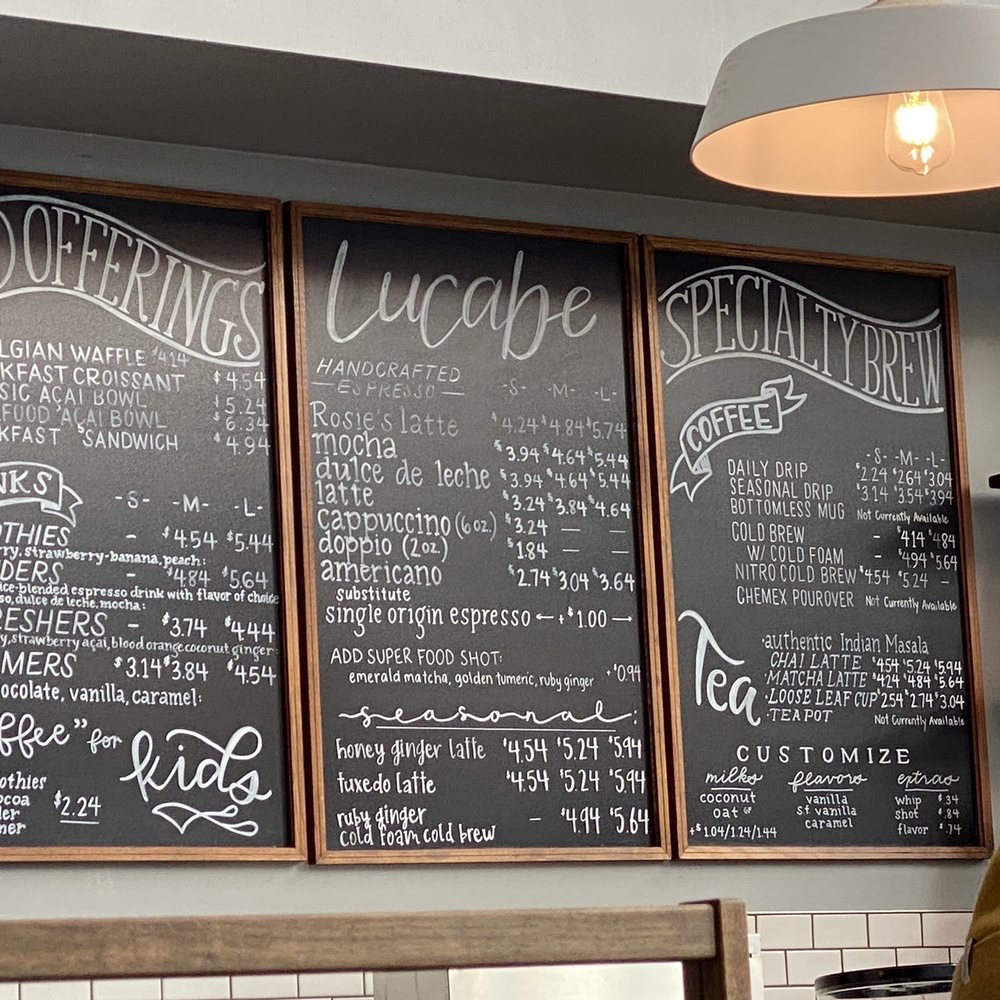 OFFERINGS
WAFFLE $4.14
CROISSANT $4.54
AÇAI BOWL $5.24
FOOD AÇAI BOWL $6.34
SANDWICH $4.94
-S- -M- -L-
- $4.54 $5.44
strawberry-banana, peach:
- $4.84 $5.64
blended espresso drink with flavor of choice
dulce de leche, mocha:
- $3.74 $4.44
strawberry açai, blood orange coconut ginger:
$3.14 $3.84 $4.54
vanilla, caramel:
for kids
$2.24
Lucabe
HANDCRAFTED
ESPRESSO -S- -M- -L-
Rosie's latte $4.24 $4.84 $5.74
mocha $3.94 $4.64 $5.44
dulce de leche $3.94 $4.64 $5.44
latte $3.24 $3.84 $4.64
cappuccino (6 oz.) $3.24 — —
doppio (2oz.) $1.84 — —
americano $2.74 $3.04 $3.64
substitute
single origin espresso ← +$1.00 →
ADD SUPER FOOD SHOT:
emerald matcha, golden tumeric, ruby ginger +$0.94
seasonal:
honey ginger latte $4.54 $5.24 $5.94
tuxedo latte $4.54 $5.24 $5.94
ruby ginger
cold foam cold brew - $4.94 $5.64
SPECIALTY BREW
COFFEE
-S- -M- -L-
DAILY DRIP $2.24 $2.64 $3.04
SEASONAL DRIP $3.14 $3.54 $3.94
BOTTOMLESS MUG Not Currently Available
COLD BREW - $4.14 $4.84
W/ COLD FOAM - $4.94 $5.64
NITRO COLD BREW $4.54 $5.24 -
CHEMEX POUROVER Not Currently Available
Tea
·authentic Indian Masala
CHAI LATTE $4.54 $5.24 $5.94
·MATCHA LATTE $4.24 $4.84 $5.64
·LOOSE LEAF CUP $2.54 $2.74 $3.04
·TEA POT Not Currently Available
CUSTOMIZE
milks flavors extras
coconut vanilla whip $.34
oat s.f. vanilla shot $.84
+$1.04/1.24/1.44 caramel flavor $.74